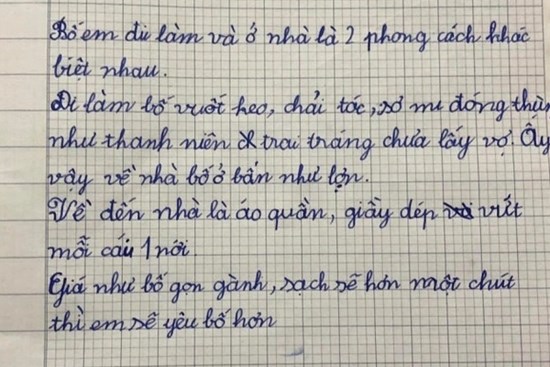 Bố em đi làm và ở nhà là 2 phong cách khác
biệt nhau.
Đi làm bố vuốt keo, chải tóc, sơ mi đóng thùn
như thanh niên trai tráng chưa lấy vợ. Ấy
vậy về nhà bố ở bẩn như lợn.
Về đến nhà là áo quần, giầy dép vứt
mỗi cái 1 nơi.
Giá như bố gọn gành, sạch sẽ hơn một chút
thì em sẽ yêu bố hơn